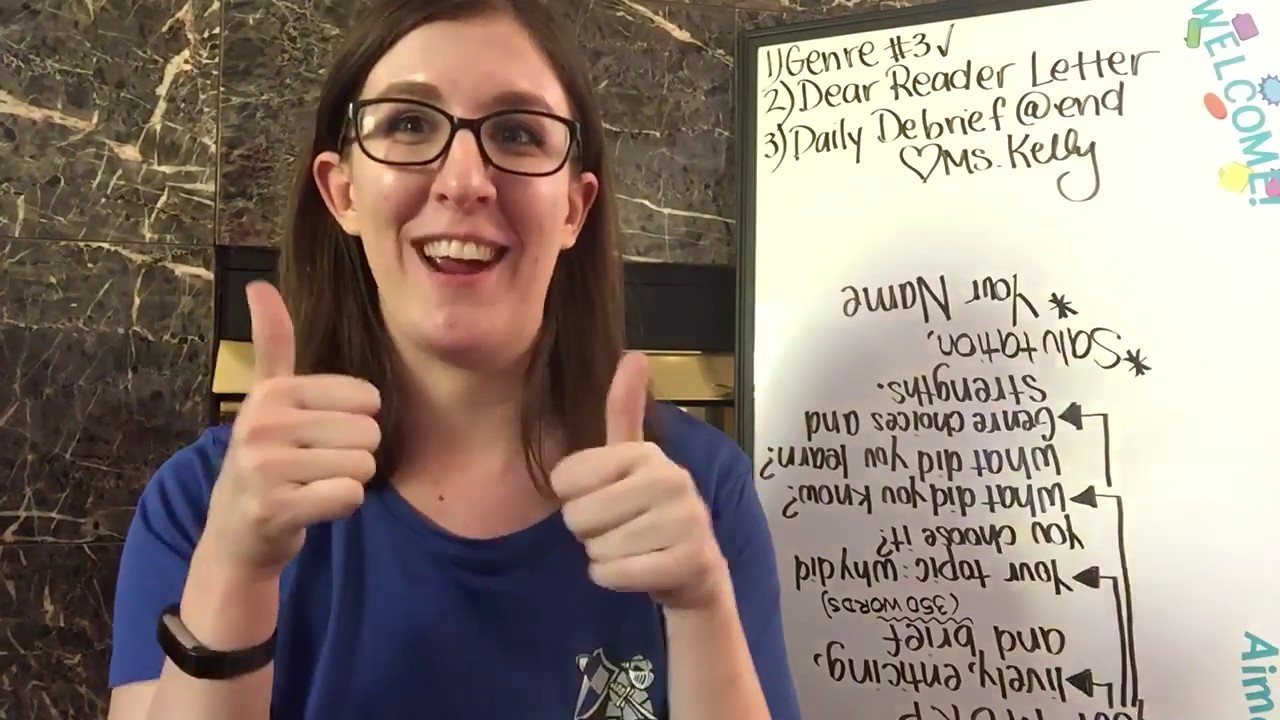 1) Genre #3 ✓
2) Dear Reader Letter
3) Daily Debrief @ end
♡ Ms. Kelly
WELCOME!
lively, enticing,
and brief
(350 WORDS)
Your topic: why did
you choose it?
What did you know?
What did you learn?
Genre choices and
strengths.
*Salutation,
*Your Name